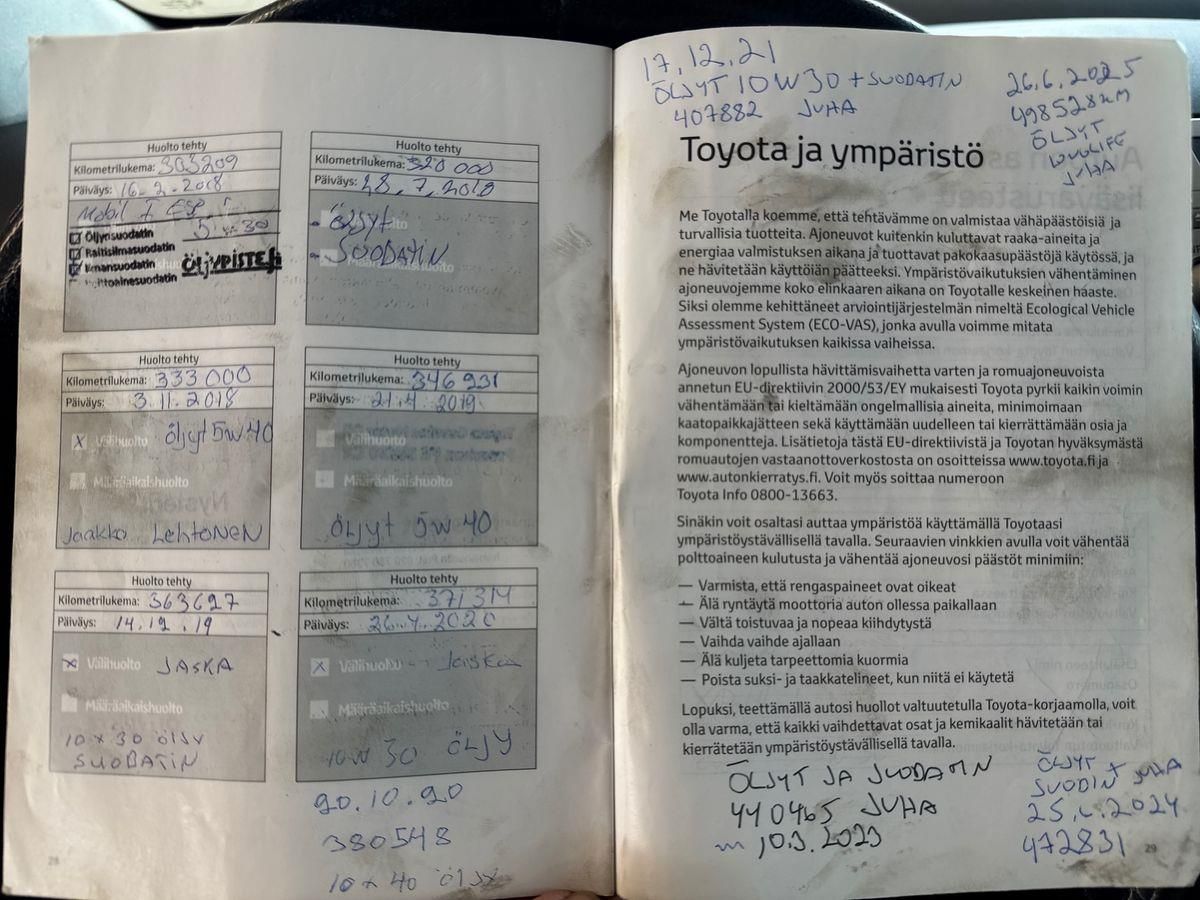 Huolto tehty
Kilometrilukema: 303209
Päiväys: 16.2.2018
Mobil 1 ESP
5w30
Öljynsuodatin
Raitisilmasuodatin
Ilmansuodatin
ÖLJYPISTE.fi
Huolto tehty
Kilometrilukema: 320 000
Päiväys: 28.7.2018
- ÖLJYT
- SUODATIN
Huolto tehty
Kilometrilukema: 333 000
Päiväys: 3.11.2018
x Välihuolto öljyt 5w40
Määräaikaishuolto
Jaakko LEHTONEN
Huolto tehty
Kilometrilukema: 346 931
Päiväys: 21.4.2019
Välihuolto
Määräaikaishuolto
ÖLJYT 5W 40
Huolto tehty
Kilometrilukema: 363627
Päiväys: 14.12.19
x Välihuolto JASKA
Määräaikaishuolto
10 x 30 ÖLJY
SUODATIN
Huolto tehty
Kilometrilukema: 371314
Päiväys: 26.4.2020
x Välihuolto Jaska
Määräaikaishuolto
10W 30 ÖLJY
20.10.20
380548
10 x 40 ÖLJY
28
17.12.21
ÖLJYT 10W30 + SUODATIN
407882 JUHA
26.6.2025
498528KM
ÖLJYT
JUHA
Toyota ja ympäristö
Me Toyotalla koemme, että tehtävämme on valmistaa vähäpäästöisiä ja
turvallisia tuotteita. Ajoneuvot kuitenkin kuluttavat raaka-aineita ja
energiaa valmistuksen aikana ja tuottavat pakokaasupäästöjä käytössä, ja
ne hävitetään käyttöiän päätteeksi. Ympäristövaikutuksien vähentäminen
ajoneuvojemme koko elinkaaren aikana on Toyotalle keskeinen haaste.
Siksi olemme kehittäneet arviointijärjestelmän nimeltä Ecological Vehicle
Assessment System (ECO-VAS), jonka avulla voimme mitata
ympäristövaikutuksen kaikissa vaiheissa.
Ajoneuvon lopullista hävittämisvaihetta varten ja romuajoneuvoista
annetun EU-direktiivin 2000/53/EY mukaisesti Toyota pyrkii kaikin voimin
vähentämään tai kieltämään ongelmallisia aineita, minimoimaan
kaatopaikkajätteen sekä käyttämään uudelleen tai kierrättämään osia ja
komponentteja. Lisätietoja tästä EU-direktiivistä ja Toyotan hyväksymästä
romuautojen vastaanottoverkostosta on osoitteissa www.toyota.fi ja
www.autonkierratys.fi. Voit myös soittaa numeroon
Toyota Info 0800-13663.
Sinäkin voit osaltasi auttaa ympäristöä käyttämällä Toyotaasi
ympäristöystävällisellä tavalla. Seuraavien vinkkien avulla voit vähentää
polttoaineen kulutusta ja vähentää ajoneuvosi päästöt minimiin:
— Varmista, että rengaspaineet ovat oikeat
— Älä ryntäytä moottoria auton ollessa paikallaan
— Vältä toistuvaa ja nopeaa kiihdytystä
— Vaihda vaihde ajallaan
— Älä kuljeta tarpeettomia kuormia
— Poista suksi- ja taakkatelineet, kun niitä ei käytetä
Lopuksi, teettämällä autosi huollot valtuutetulla Toyota-korjaamolla, voit
olla varma, että kaikki vaihdettavat osat ja kemikaalit hävitetään tai
kierrätetään ympäristöystävällisellä tavalla.
ÖLJYT JA SUODATIN
440465 JUHA
10.3.2023
ÖLJYT +
SUODIN JUHA
25.4.2024
472831
29